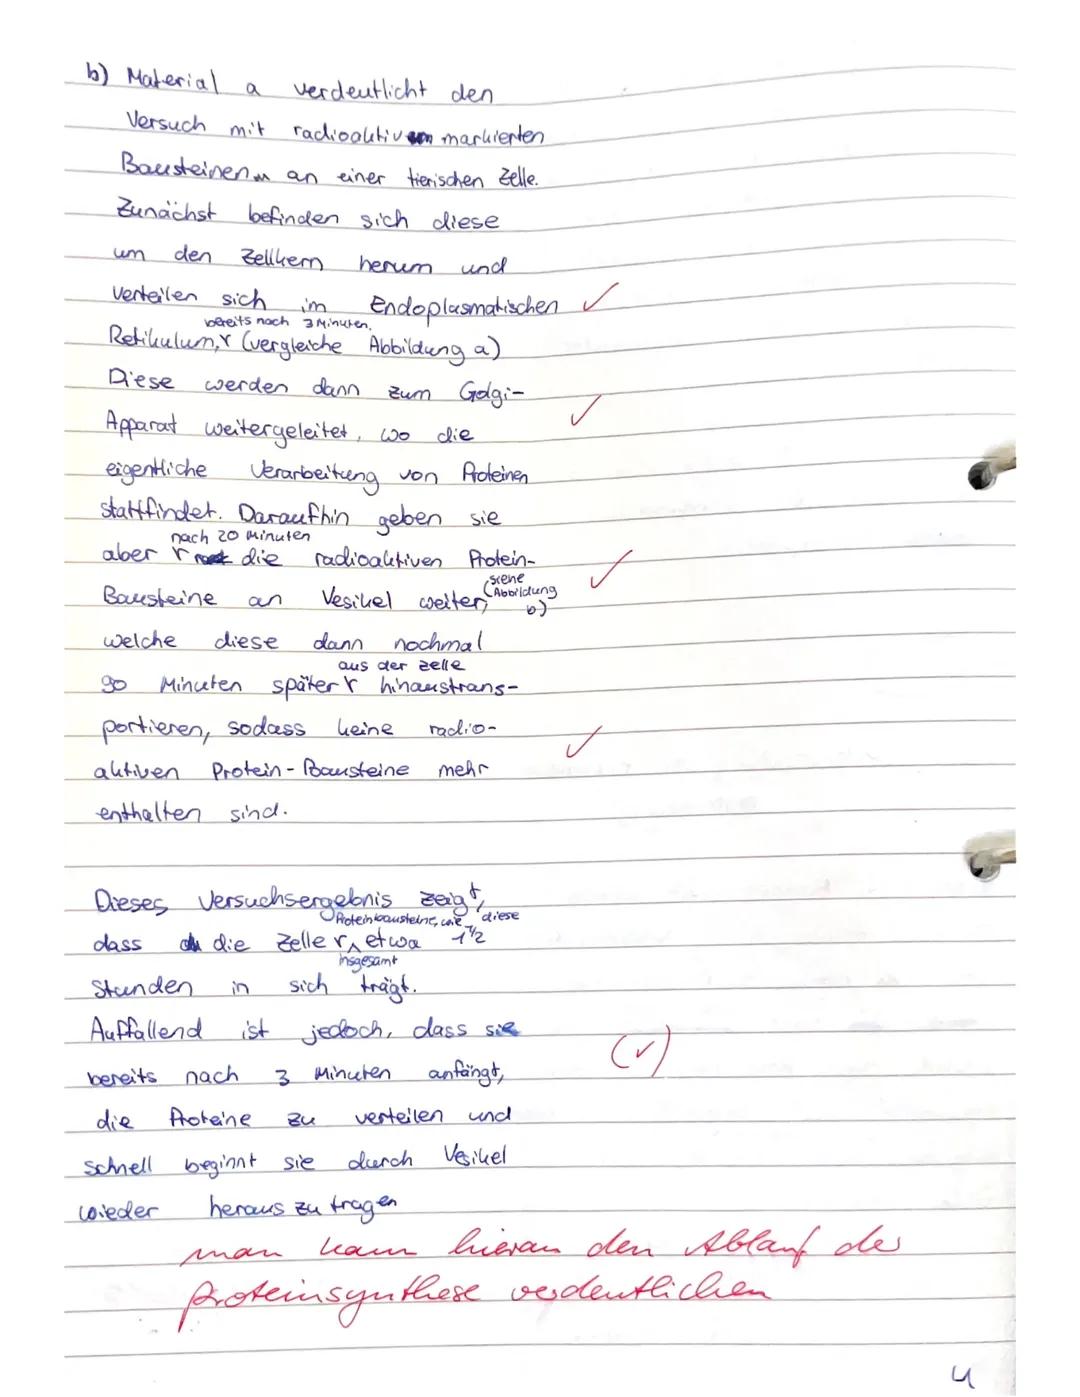 b) Material a verdeutlicht den
Versuch mit radioaktiv markierten
Bausteinen an einer tierischen Zelle.
Zunächst befinden sich diese
um den Zellkern herum und
verteilen sich im Endoplasmatischen ✓
bereits nach 3 Minuten.
Retikulum, r (vergleiche Abbildung a)
Diese werden dann zum Golgi-
Apparat weitergeleitet, wo die ✓
eigentliche Verarbeitung von Proteinen
stattfindet. Daraufhin geben sie
nach 20 Minuten
aber r die radioaktiven Protein-
Bausteine an Vesikel weiter, (siehe Abbildung b) ✓
welche diese dann nochmal
aus der Zelle
90 Minuten später r hinaustrans-
portieren, sodass keine radio-
aktiven Protein-Bausteine mehr ✓
enthalten sind.
Dieses Versuchsergebnis zeigt,
Proteinbausteine, wie diese
dass die Zelle r etwa 1 1/2
insgesamt
Stunden in sich trägt.
Auffallend ist jedoch, dass sie
bereits nach 3 Minuten anfängt, (✓)
die Proteine zu verteilen und
schnell beginnt sie durch Vesikel
wieder heraus zu tragen
man kann hieran den Ablauf der
Proteinsynthese verdeutlichen
4